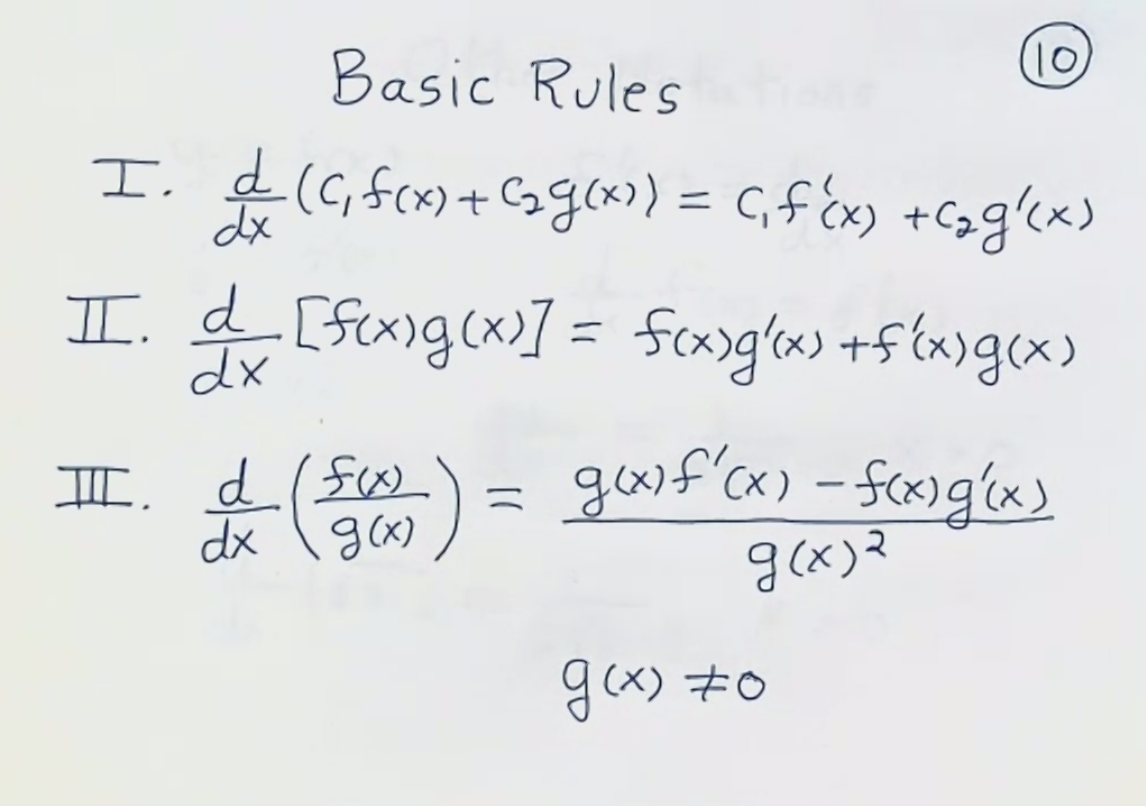 10
Basic Rules
I. d/dx (C₁f(x) + C₂g(x)) = C₁f'(x) + C₂g'(x)
II. d/dx [f(x)g(x)] = f(x)g'(x) + f'(x)g(x)
III. d/dx (f(x)/g(x)) = (g(x)f'(x) - f(x)g'(x))/g(x)²
g(x) ≠ 0